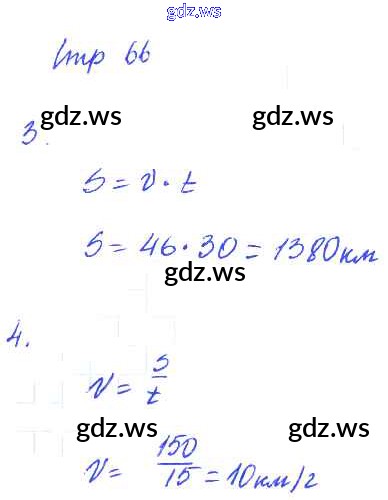 gdz.ws
Стр 66
gdz.ws gdz.ws
3.
S = v · t
S = 46 · 30 = 1380 км
gdz.ws
4.
v = S/t
gdz.ws gdz.ws
v = 150/15 = 10 км/г
gdz.ws